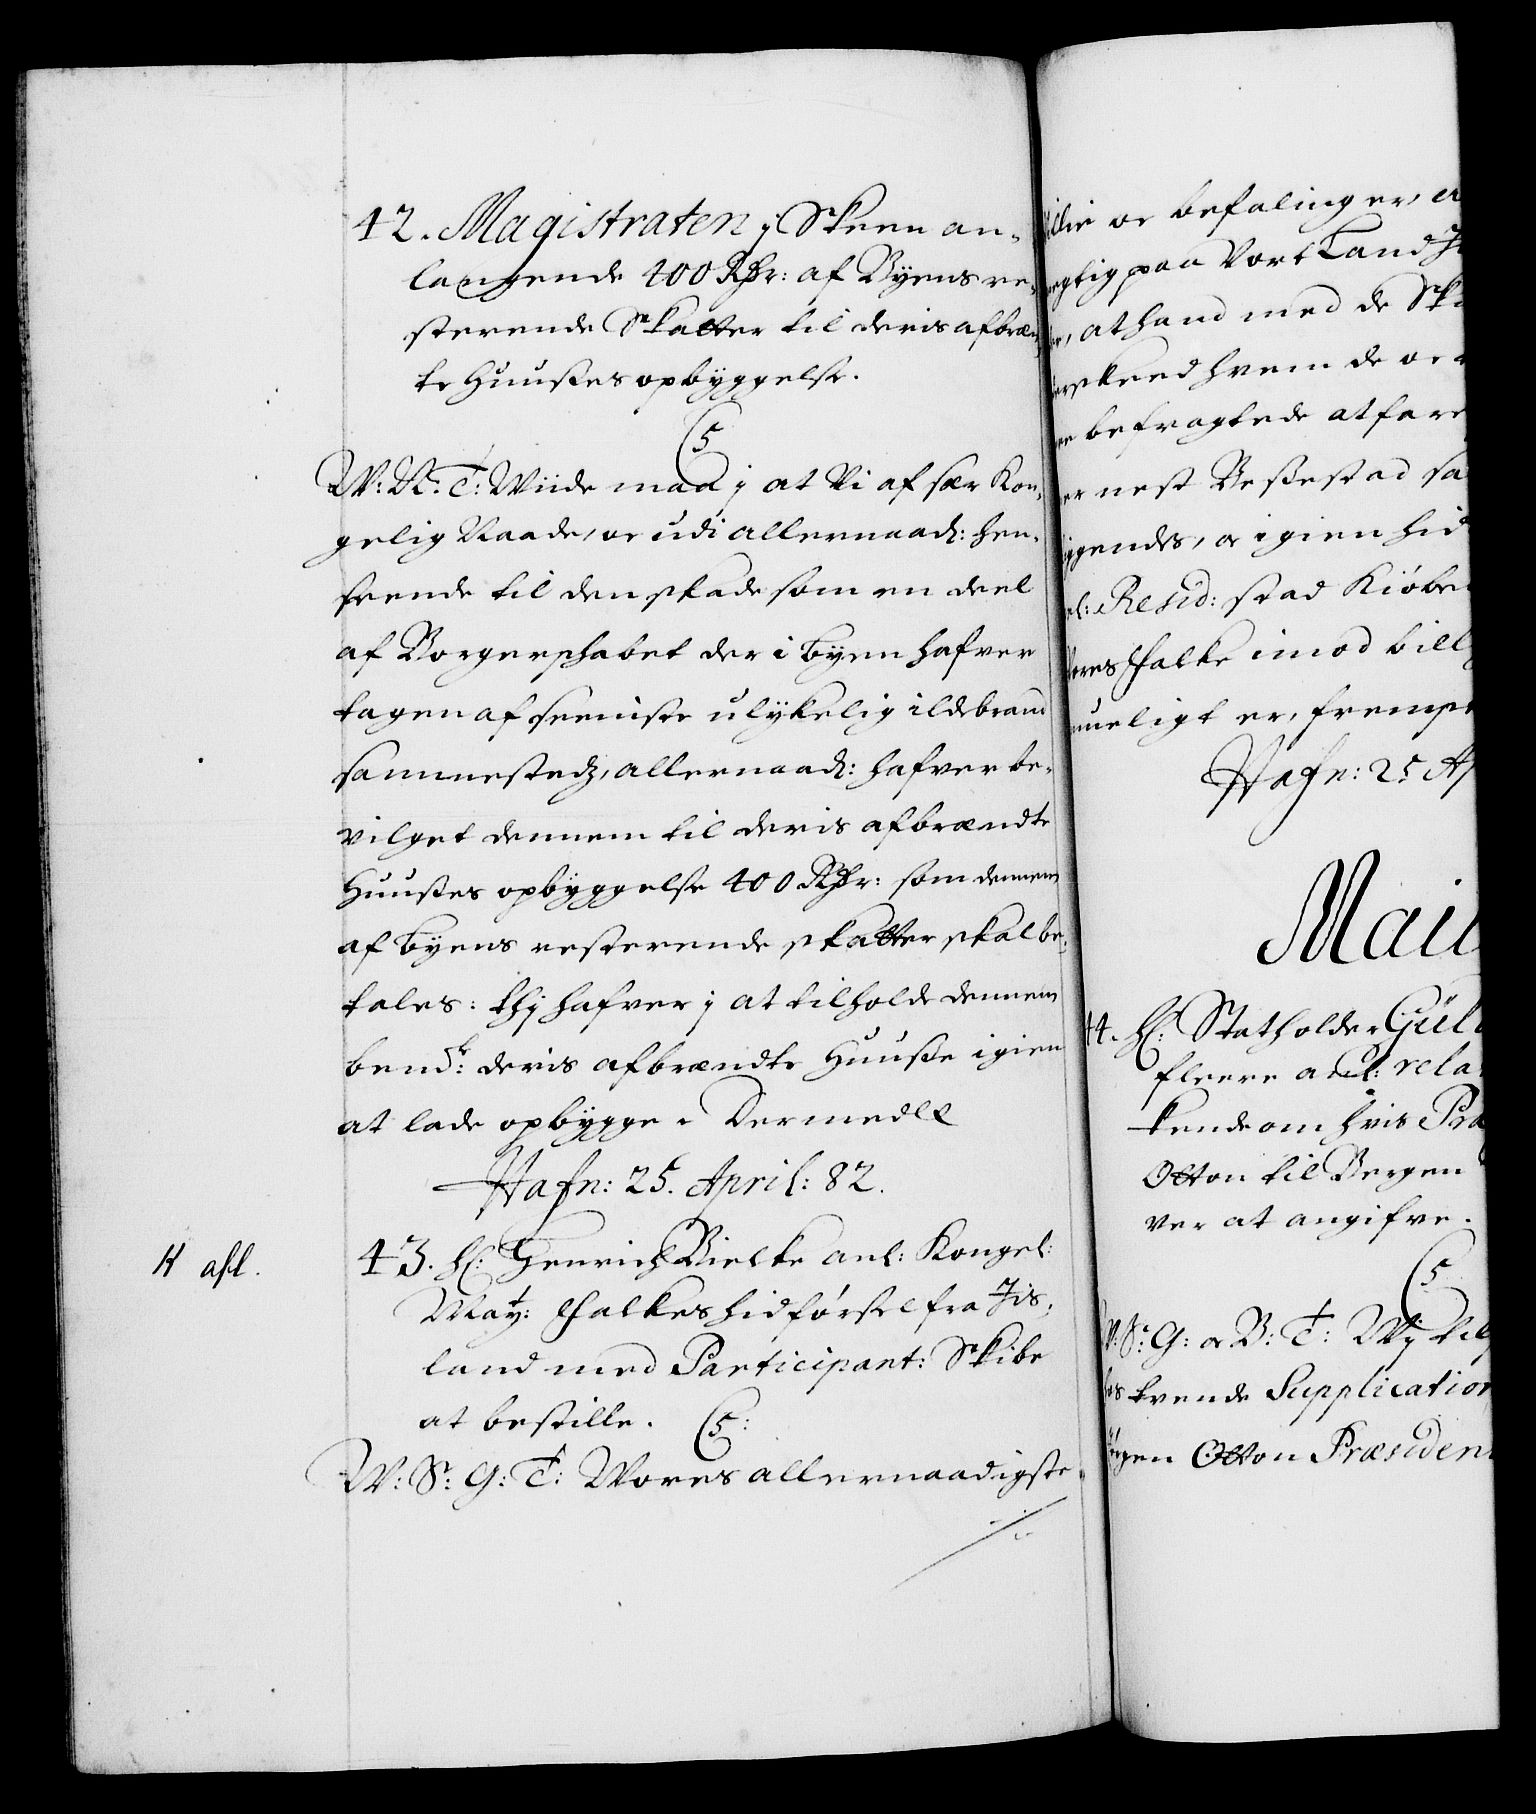 42. Magistraten j Skeen an-
langende 400 Rdr: af Byens re-
sterende Skatter til deris afbræn-
te Huußes opbyggelse.
C5
W: N: T: Wiide maa j at Vi af sær Kon-
gelig Naade, oc udi allernaad: hen-
seende til den skade som en deel
af Borgerskabet der i byen hafver
tagen af seeniste ulykelig ildebrand
sammestedz, allernaad: hafver be-
vilget dennem til deris afbrændte
Huußes opbyggelse 400 Rdr: som dennem
af byens resterende skatter skal be-
tales: thj hafver j at tilholde dennem
bend: deris afbrændte Huuße igien
at lade opbygge. Dermed
Hafn: 25. April: 82.
K afl.
43. H: Henrich Bielke anl: Kongel:
May: Falkes hidførsel fra Jis-
land med Participant: Skibe
at bestille. C5:
W: S: G: T: Wores allernaadigste
oc befalinger, er
paa Vort Land
, at hand med de
hvem de oc
befragtede at fare
nest Beßestad
, oc igien hid
Resid: stad Kiøbe
Falke imod bill
er, frems
Hafn: 25 Ap
Mai
44. H: Statholder Gül
fleere anl: rela
kende om hvis Præ
Otton til Bergen
ver at angifve.
C5
S: G: oc B: T: Wj til
tvende Supplication
Otton Præsiden